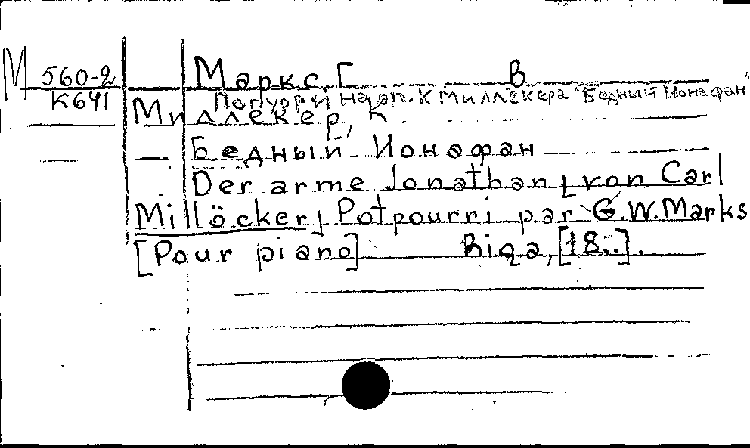 М 560-2 Маркс, Г. В
К641 Попурри на оп. К Миллекера "Бедный Ионафан"
Миллекер, К
Бедный Ионафан
Der arme Jonathan, von Carl
Millöcker, Potpourri par G.W. Marks
[Pour piano] Riga, [18..].